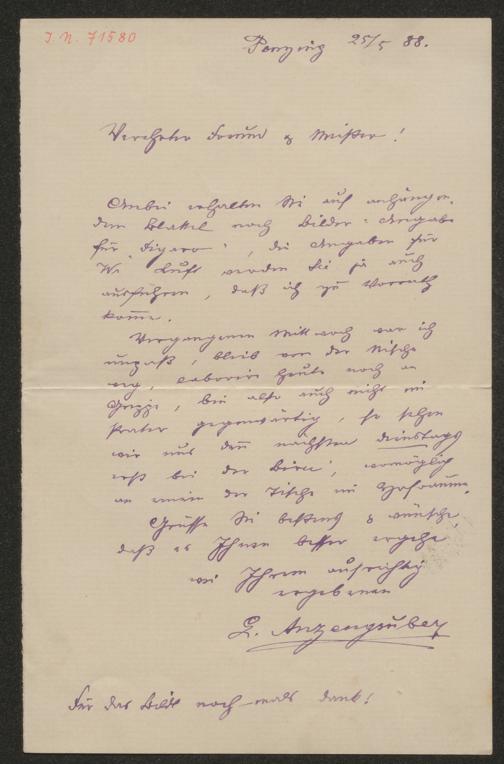 J. N. 71580
Penzing 25/5 88.
Verehrter Freund & Meister!
Anbei erhalten Sie auf anhängen-
dem Blattel noch Bilder-Angabe
für „Figaro“, die Angaben für
Wr Luft werden Sie ja auch
ausführen, daß ich zu Vorrath
komme.
Vergangenen Mittwoch war ich
unpaß, blieb von der Nische
weg, laborire heute noch an
Grippe, bin also auch nicht im
Prater gegenwärtig, so sehen
wir uns den nächsten Dienstag
erst bei der Birn', womöglich
an einem der Tische im Hofraume.
Grüsse Sie bestens & wünsche,
daß es Ihnen besser ergehe
wie Ihrem aufrichtig
ergebenen
L. Anzengruber
Für das Bild nochmals Dank!